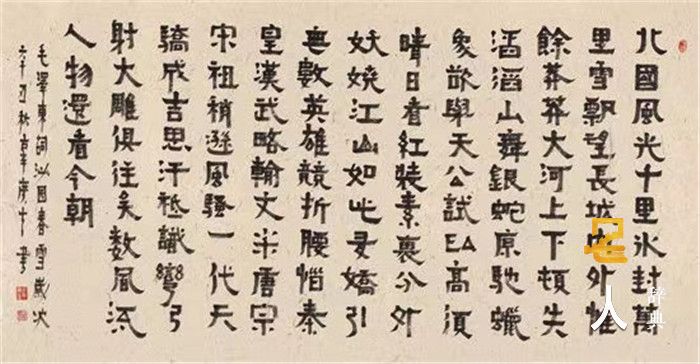 北國風光千里冰封萬
里雪飄望長城内外惟
餘莽莽大河上下頓失
滔滔山舞銀蛇原馳蠟
象欲與天公試比高須
晴日看紅裝素裹分外
妖嬈江山如此多嬌引
無數英雄競折腰惜秦
皇漢武略輸文采唐宗
宋祖稍遜風騷一代天
驕成吉思汗衹識彎弓
射大雕俱往矣數風流
人物還看今朝
毛澤東詞沁園春雪歲次
辛丑秋
人
辞典